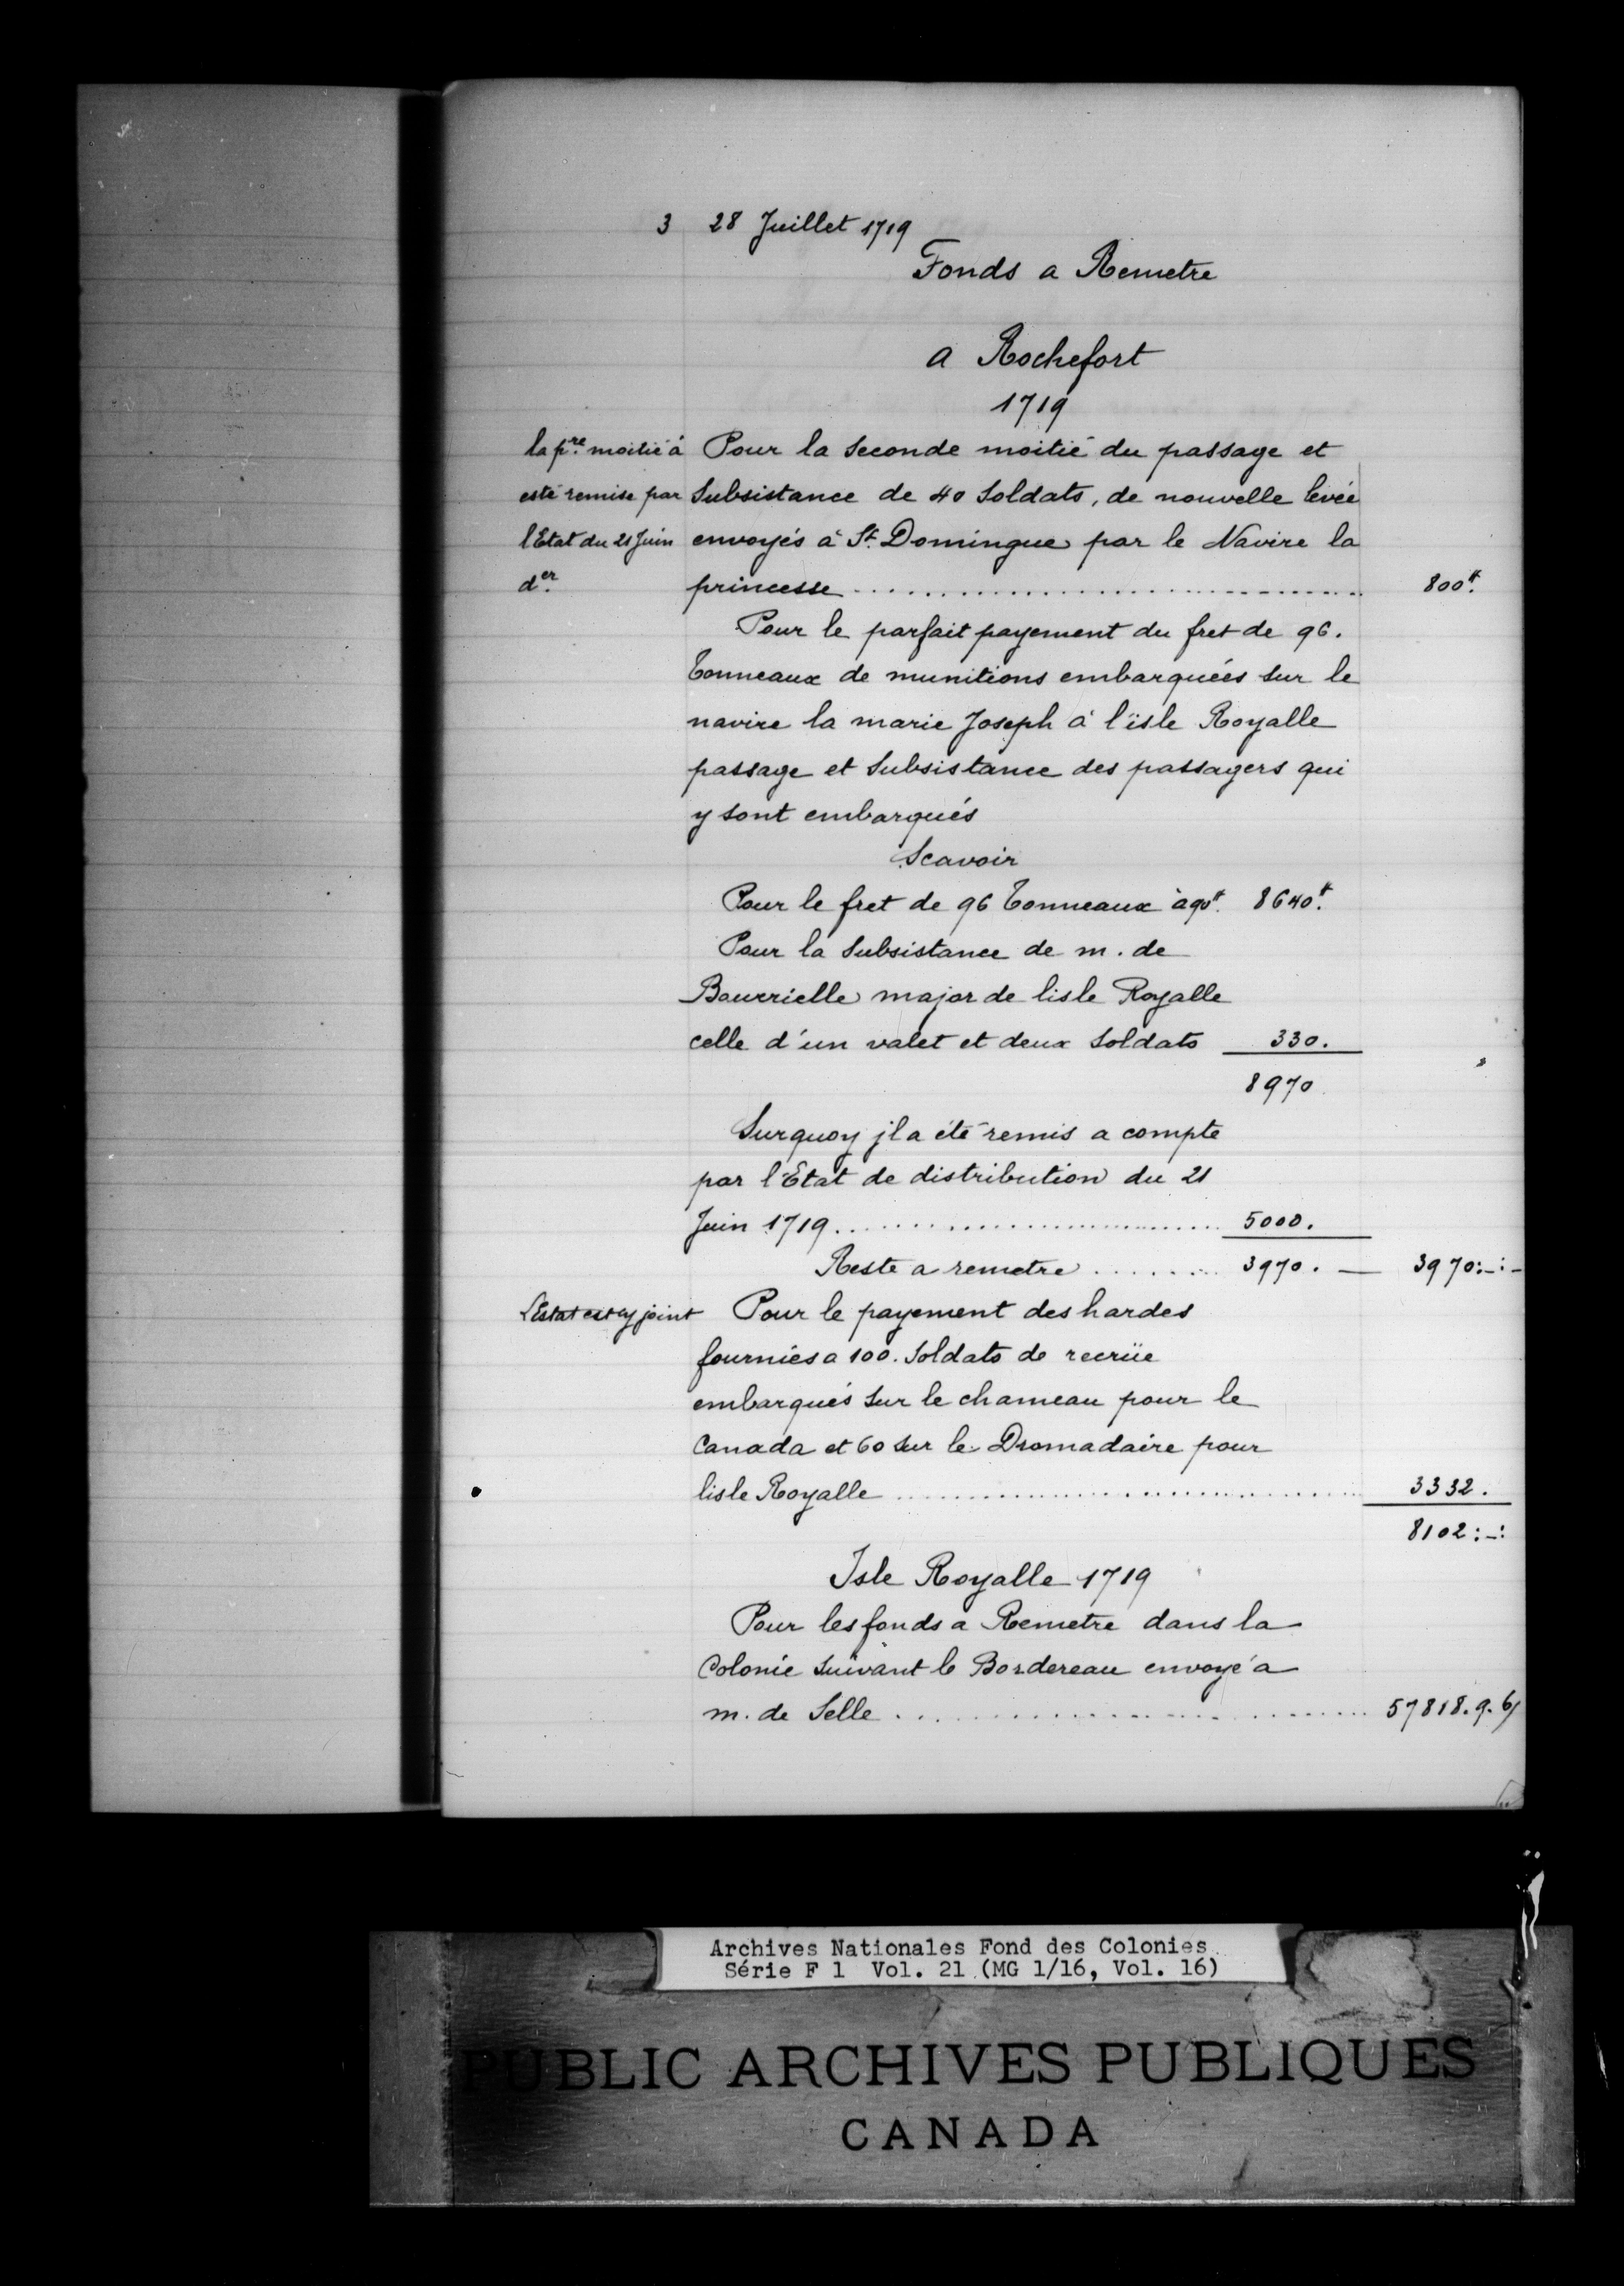 3 28 Juillet 1719
Fonds a Remetre
a Rochefort
1719
la pre. moitié à
esté remise par
l'Etat du 21 Juin
der.
Pour la Seconde moitié du passage et
Subsistance de 40 Soldats, de nouvelle levée
envoyés à St. Domingue par le Navire la
princesse .......... 800#.
Pour le parfait payement du fret de 96.
Tonneaux de munitions embarquées sur le
navire la marie Joseph à l'isle Royalle
passage et Subsistance des passagers qui
y sont embarqués
Scavoir
Pour le fret de 96 Tonneaux à 90#. 8640#.
Pour la Subsistance de m. de
Bourrielle major de lisle Royalle
celle d'un valet et deux Soldats 330.
8970
Surquoy jl a été remis a compte
par l'Etat de distribution du 21
Juin 1719 .......... 5000.
Reste a remetre ....... 3970. — 3970:-:-
L'Estat est cy joint
Pour le payement des hardes
fournies a 100. Soldats de recrüe
embarqués Sur le chameau pour le
Canada et 60 Sur le Dromadaire pour
lisle Royalle .......... 3332.
8102:-:
Isle Royalle 1719
Pour les fonds a Remetre dans la
Colonie Suivant le Bordereau envoyé a
m. de Selle .......... 57818.9.6/
Archives Nationales Fond des Colonies
Série F 1 Vol. 21 (MG 1/16, Vol. 16)
PUBLIC ARCHIVES PUBLIQUES
CANADA